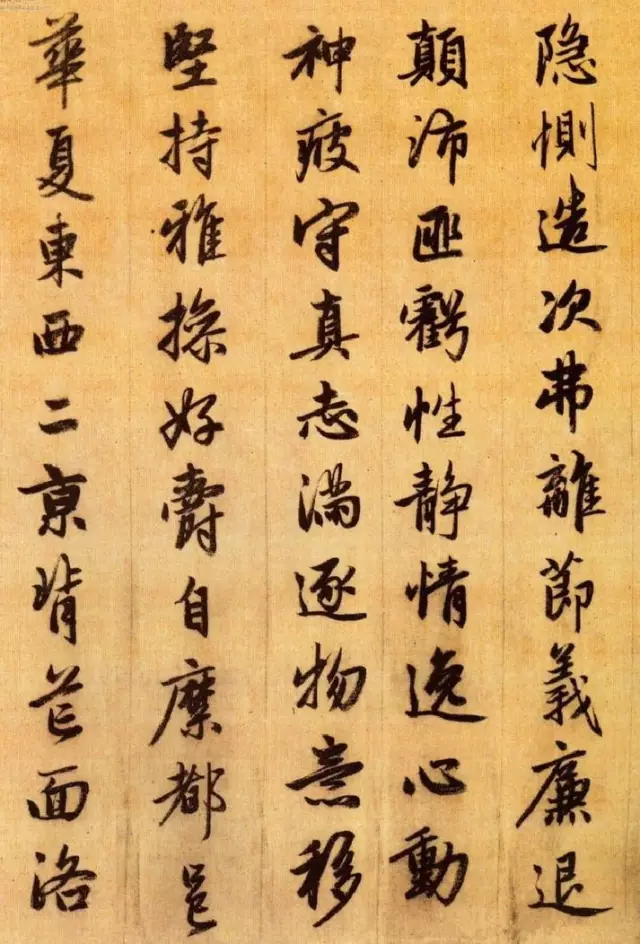 隐惻造次弗離節義廉退
顛沛匪虧性静情逸心動
神疲守真志滿逐物意移
堅持雅操好爵自縻都邑
華夏東西二京背芒面洛